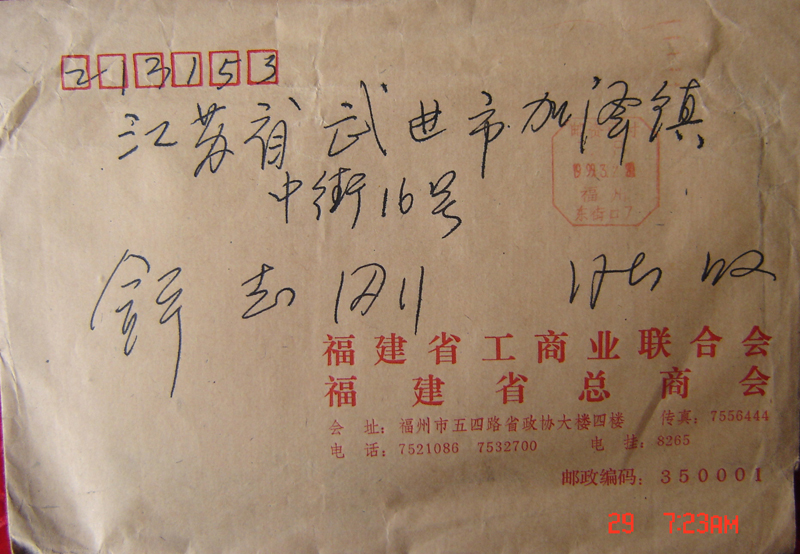 213153
江苏省武进市加泽镇
中街16号
舒志刚 同志 收
福建省工商业联合会
福建省总商会
会 址：福州市五四路省政协大楼四楼 传真：7556444
电 话：7521086 7532700 电 挂：8265
邮政编码：350001
29 7:23AM